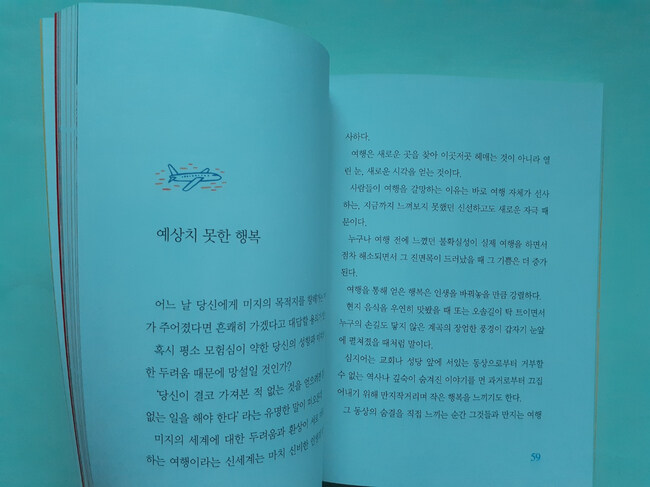 예상치 못한 행복
어느 날 당신에게 미지의 목적지를 향해
가 주어졌다면 흔쾌히 가겠다고 대답할
혹시 평소 모험심이 약한 당신의 성향과
한 두려움 때문에 망설일 것인가?
'당신이 결코 가져본 적 없는 것을 얻으려면
없는 일을 해야 한다' 라는 유명한 말이
미지의 세계에 대한 두려움과 환상이
하는 여행이라는 신세계는 마치 신비한
사하다.
여행은 새로운 곳을 찾아 이곳저곳 헤매는 것이 아니라 열
린 눈, 새로운 시각을 얻는 것이다.
사람들이 여행을 갈망하는 이유는 바로 여행 자체가 선사
하는, 지금까지 느껴보지 못했던 신선하고도 새로운 자극 때
문이다.
누구나 여행 전에 느꼈던 불확실성이 실제 여행을 하면서
점차 해소되면서 그 진면목이 드러났을 때 그 기쁨은 더 증가
된다.
여행을 통해 얻은 행복은 인생을 바꿔놓을 만큼 강렬하다.
현지 음식을 우연히 맛봤을 때 또는 오솔길이 탁 트이면서
누구의 손길도 닿지 않은 계곡의 장엄한 풍경이 갑자기 눈앞
에 펼쳐졌을 때처럼 말이다.
심지어는 교회나 성당 앞에 서있는 동상으로부터 거부할
수 없는 역사나 깊숙이 숨겨진 이야기를 먼 과거로부터 끄집
어내기 위해 만지작거리며 작은 행복을 느끼기도 한다.
그 동상의 숨결을 직접 느끼는 순간 그것들과 만지는 여행
59